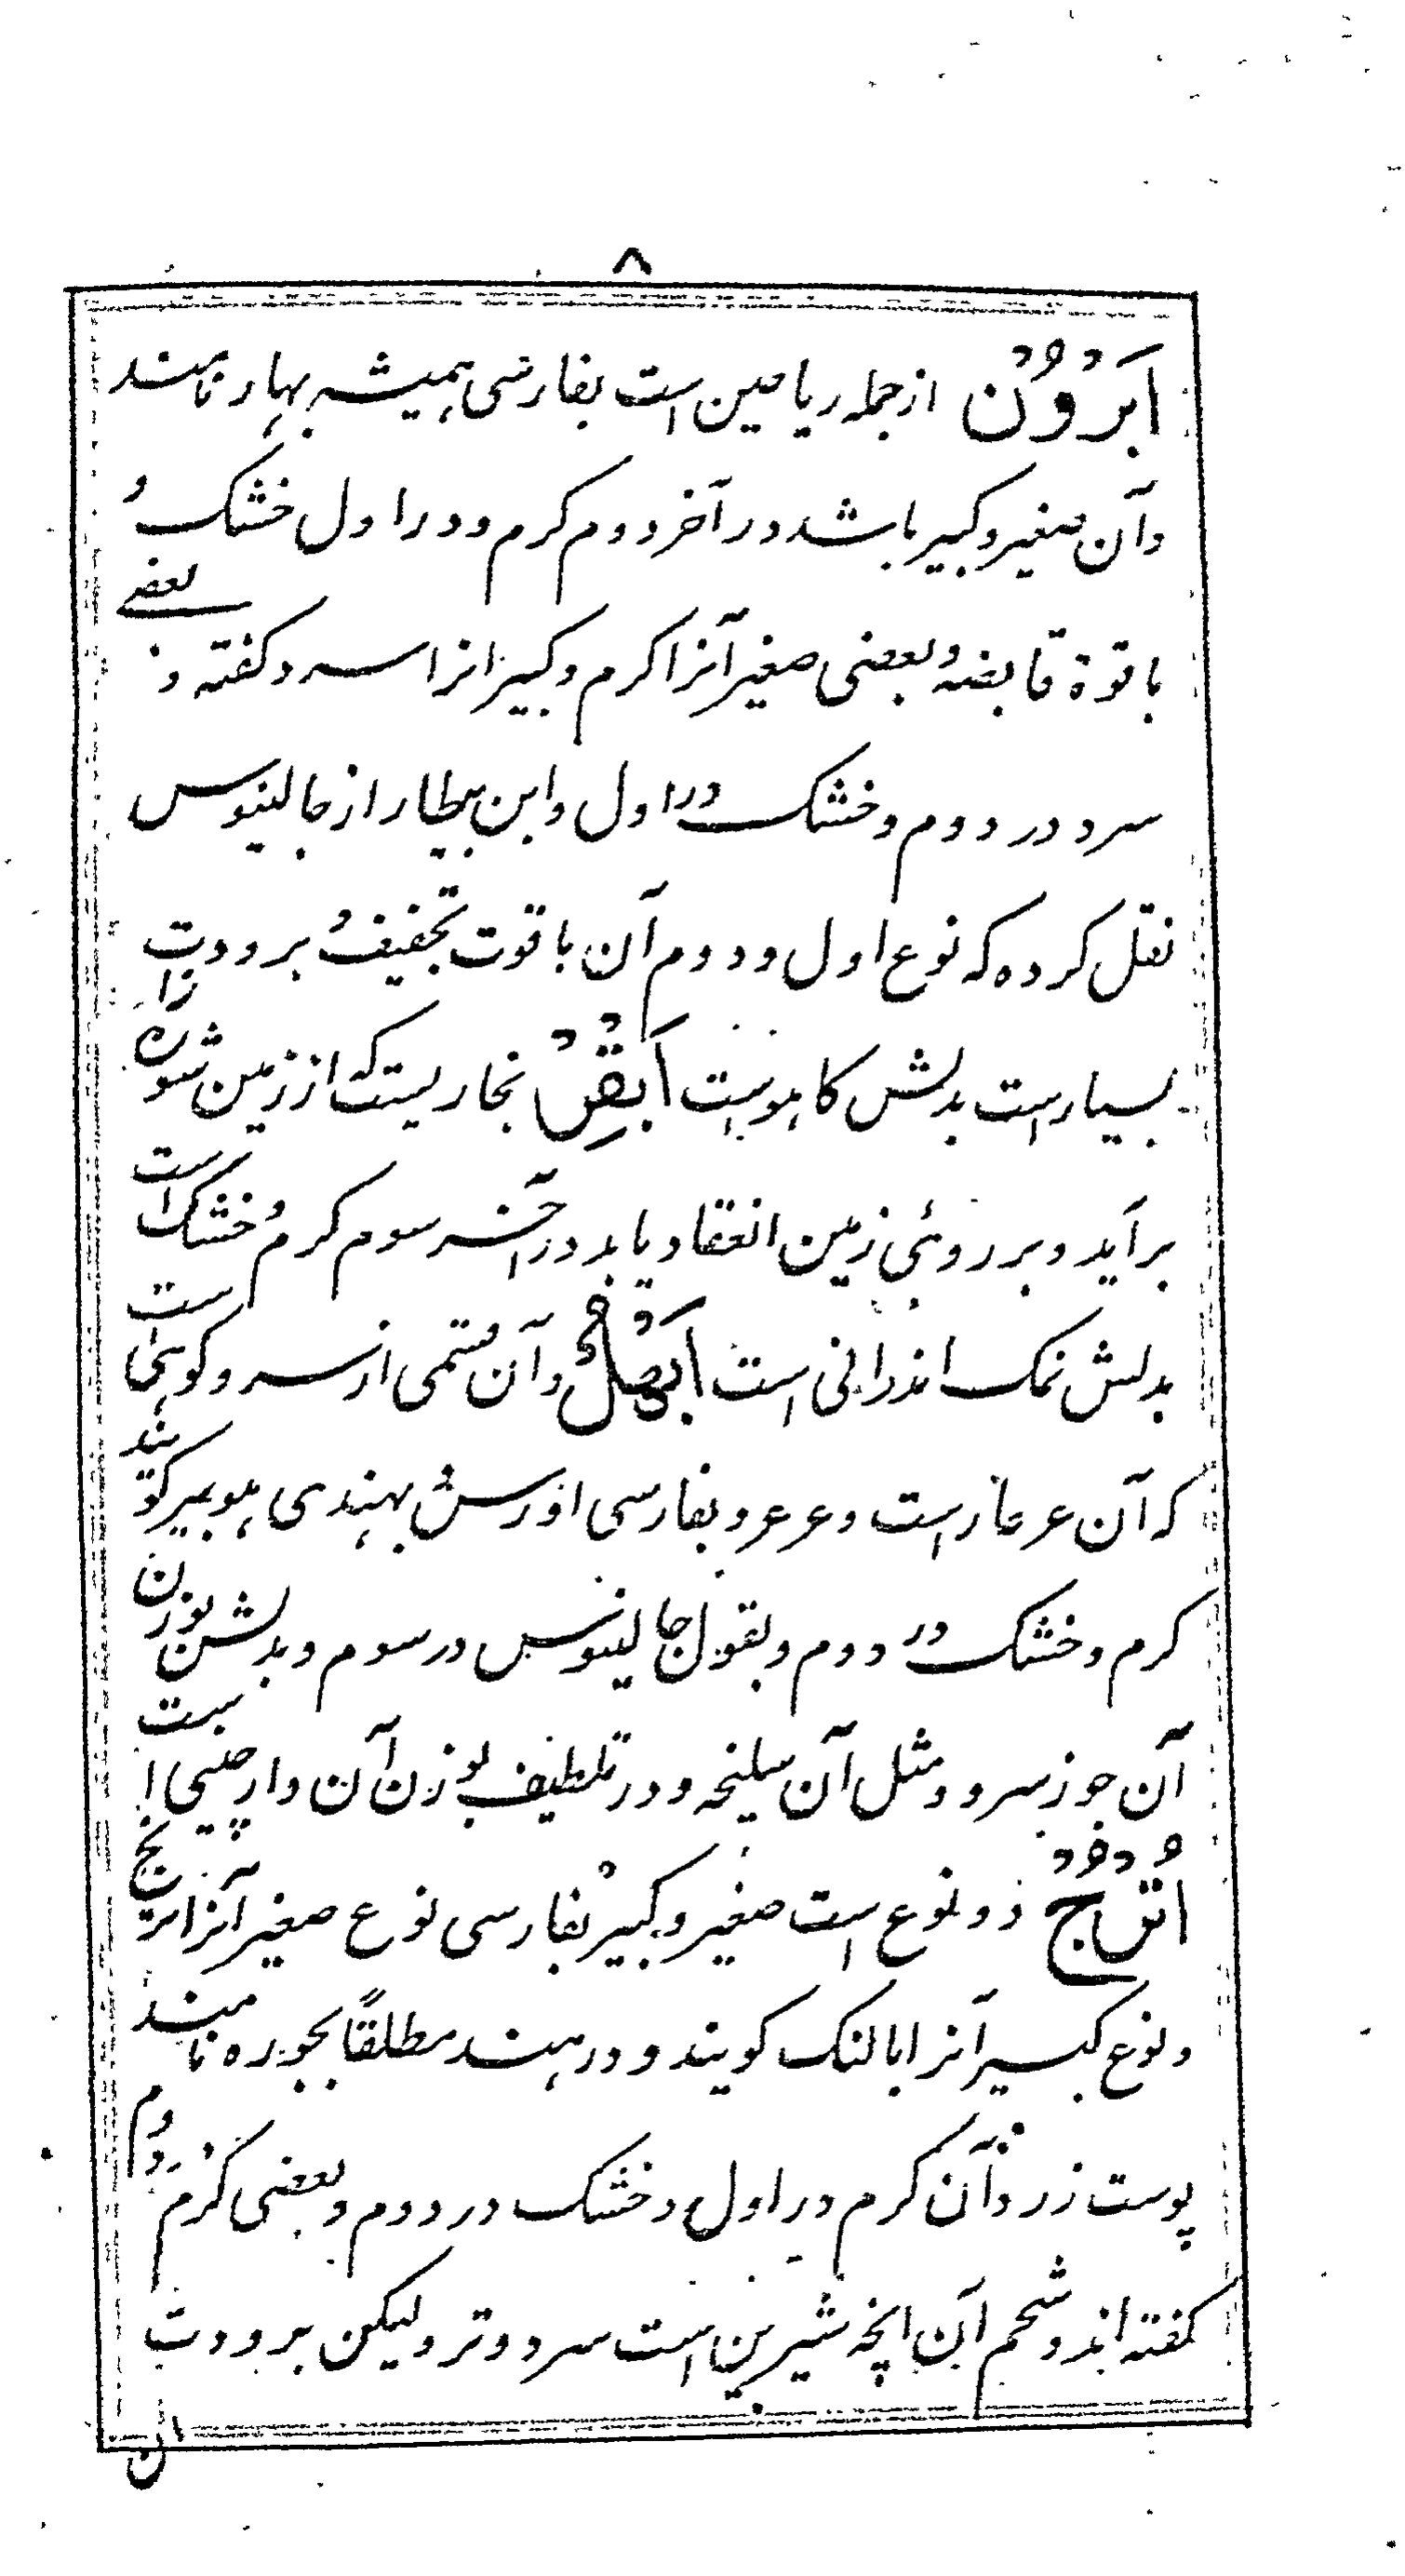 ۸
ابرون از جمله ریاحین است بفارسی همیشه بهار نامند
وآن صغیر وکبیر باشد در آخر دوم کرم ودر اول خشک و
با قوة قابضه وبعضی صغیر آنرا کرم وکبیر انرا سرد کفته و بعضے
سرد در دوم وخشک در اول وابن بیطار از جالینوس
نقل کرده که نوع اول ودوم آن با قوت تجفیف و برودت
بسیار است بدلش کاهو است ابقر بخاریست که از زمین شوره زار
برآید وبر روئی زمین انعقاد یابد در آخر سوم کرم وخشک است
بدلش نمک اندرانی است ابهل وآن قسمی از سرو کوهی است
که آن عرعار است وعرعر وبفارسی اورس بهندی هوبیر کویند
کرم وخشک در دوم وبقول جالینوس در سوم وبدلش بوزن
آن جوز سرو ومثل آن سلیخه ودر تلطیف بوزن آن دارچینی است
اترج دو نوع است صغیر وکبیر بفارسی نوع صغیر آنرا ترنج
ونوع کبیر آنرا بالنک کویند ودر هند مطلقاً بجوره نامند
پوست زرد آن کرم در اول وخشک در دوم وبعضی کرم دوم
کفته اند وشحم آن انچه شیرین است سرد وتر ولیکن برودت
ان